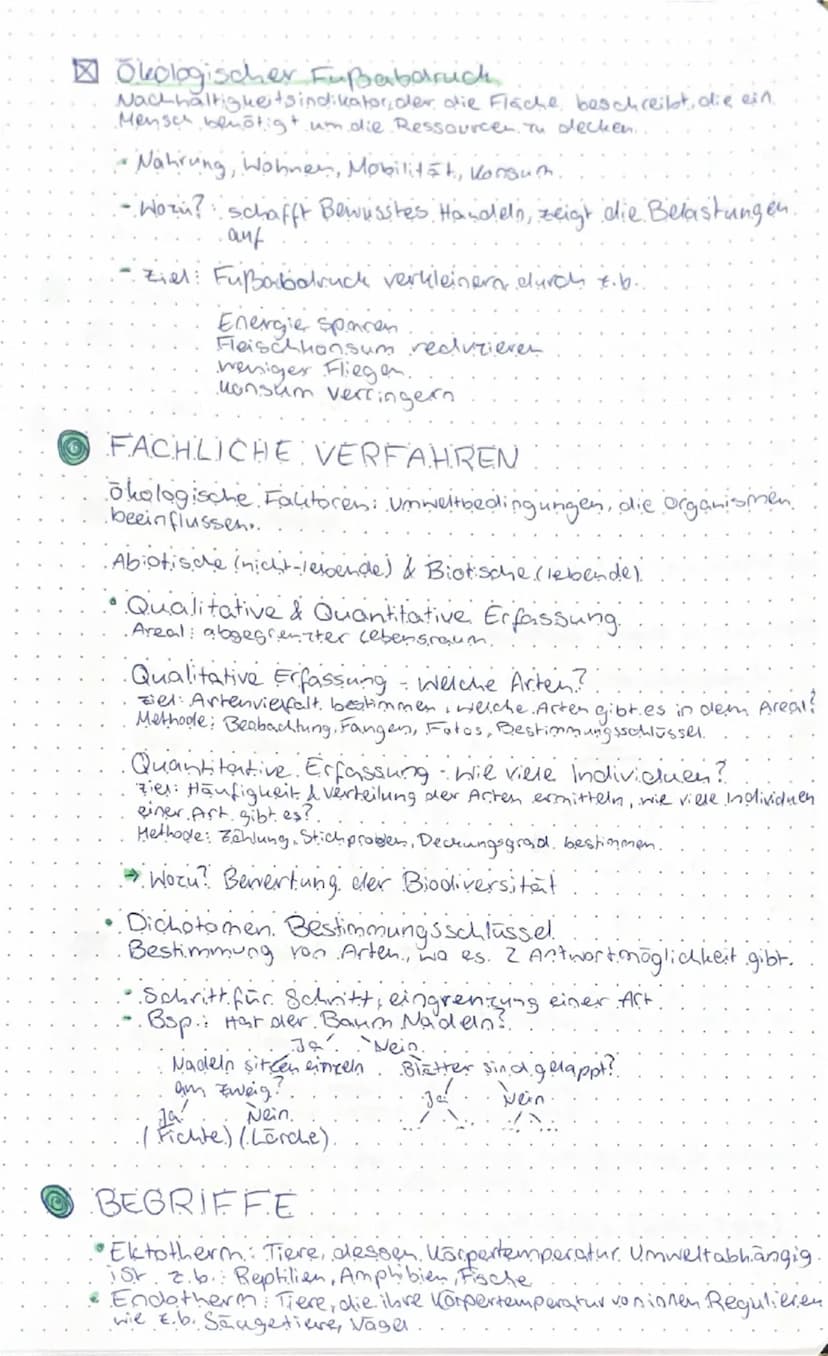 Ökologischer Fußabdruck
Nachhaltigkeitsindikator, der die Fläche beschreibt, die ein
Mensch benötigt um die Ressourcen zu decken.
- Nahrung, Wohnen, Mobilität, Konsum
- Wozu? : schafft Bewusstes Handeln, zeigt die Belastungen
auf
- Ziel: Fußabdruck verkleinern durch z.b.
Energie sparen
Fleischkonsum reduzieren
weniger Fliegen
Konsum verringern
FACHLICHE VERFAHREN
Ökologische Faktoren: Umweltbedingungen, die Organismen
beeinflussen.
Abiotische (nicht-lebende) & Biotische (lebende)
• Qualitative & Quantitative Erfassung
Areal: abgegrenzter Lebensraum
Qualitative Erfassung - Welche Arten?
Ziel: Artenvielfalt bestimmen, welche Arten gibt es in dem Areal?
Methode: Beobachtung, Fangen, Fotos, Bestimmungsschlüssel
Quantitative Erfassung - Wie viele Individuen?
Ziel: Häufigkeit & Verteilung der Arten ermitteln, wie viele Individuen
einer Art gibt es?
Methode: Zählung, Stichproben, Deckungsgrad bestimmen.
→ Wozu? Bewertung der Biodiversität
• Dichotomen Bestimmungsschlüssel
Bestimmung von Arten, wo es 2 Antwortmöglichkeit gibt.
- Schritt für Schritt, eingrenzung einer Art
- Bsp.: Hat der Baum Nadeln?
Ja Nein
Nadeln sitzen einzeln Blätter sind gelappt?
am Zweig?
Ja Nein
Ja Nein
(Fichte) (Lärche)
BEGRIFFE
• Ektotherm: Tiere, dessen Körpertemperatur Umweltabhängig
ist z.b.: Reptilien, Amphibien, Fische
• Endotherm: Tiere, die ihre Körpertemperatur von innen Regulieren
wie z.b. Säugetiere, Vögel